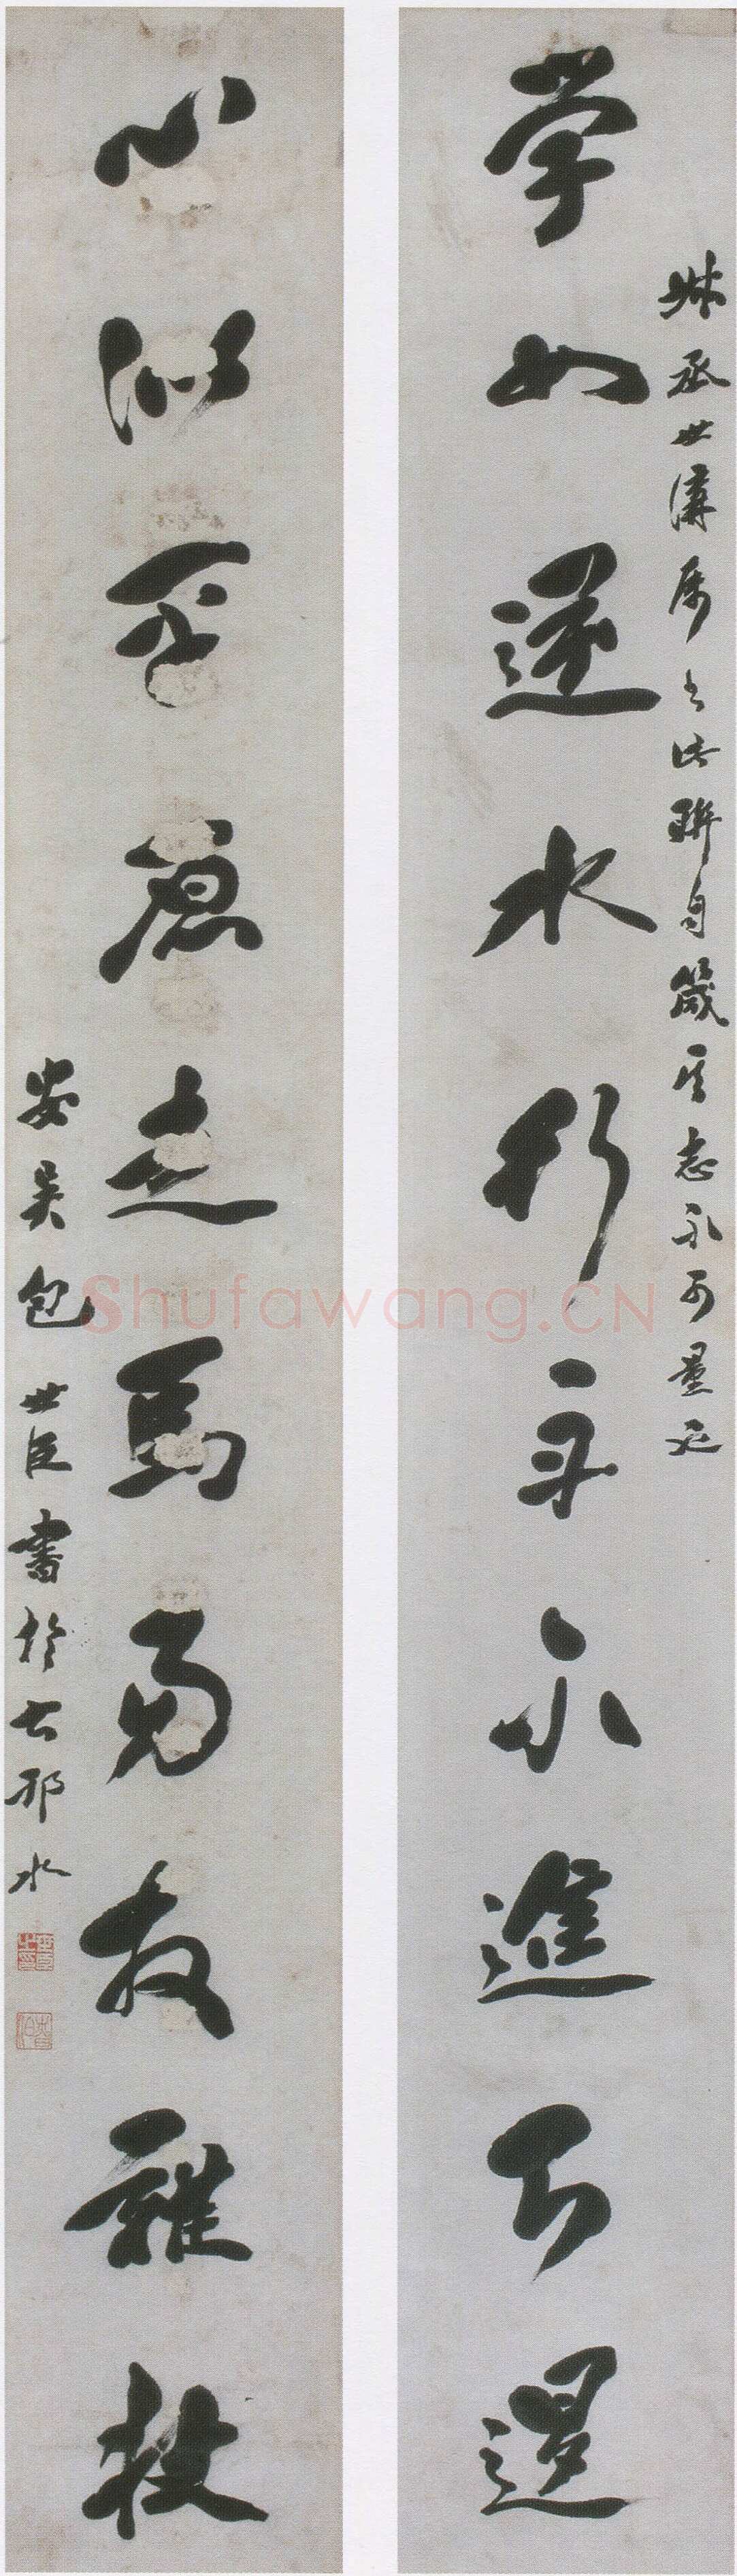 丞世講屬書此聯自箴其志不可量也
學如逆水行舟不進則退
心似平原走馬易放難收
安吳包世臣書於古邗水
Shufawang.CN